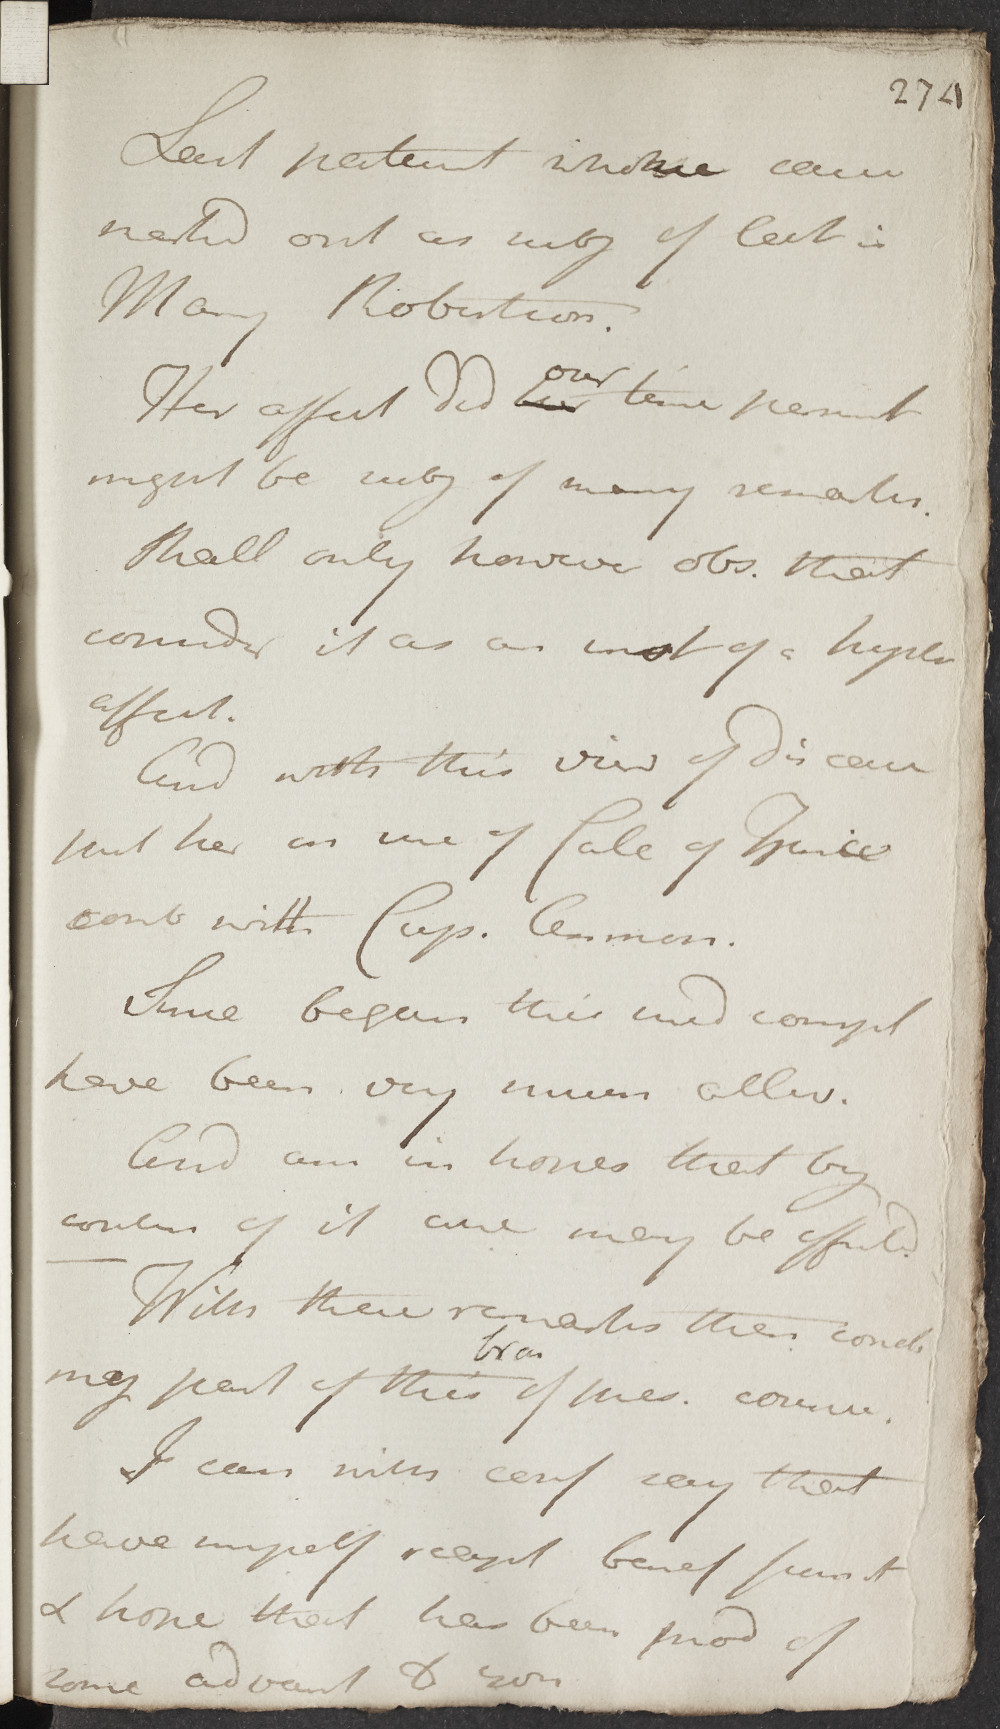 274
Last patient whose case
marked out as subj of lect is
Mary Robertson.
Her affect did our time permit
might be subj of many remarks.
Shall only however obs. that
consider it as an inst of a hyster
affect.
And with this view of dis came
put her on use of
comb with Cup. Ammon.
Since began this med compl
have been very much allev.
And am in hopes that by
contin of it cure may be effected.
With these remarks then conclu
my part of this bran of pres. course.
I can with conf say that
have myself recept benef from it
& hope that has been prod of
some advant to you